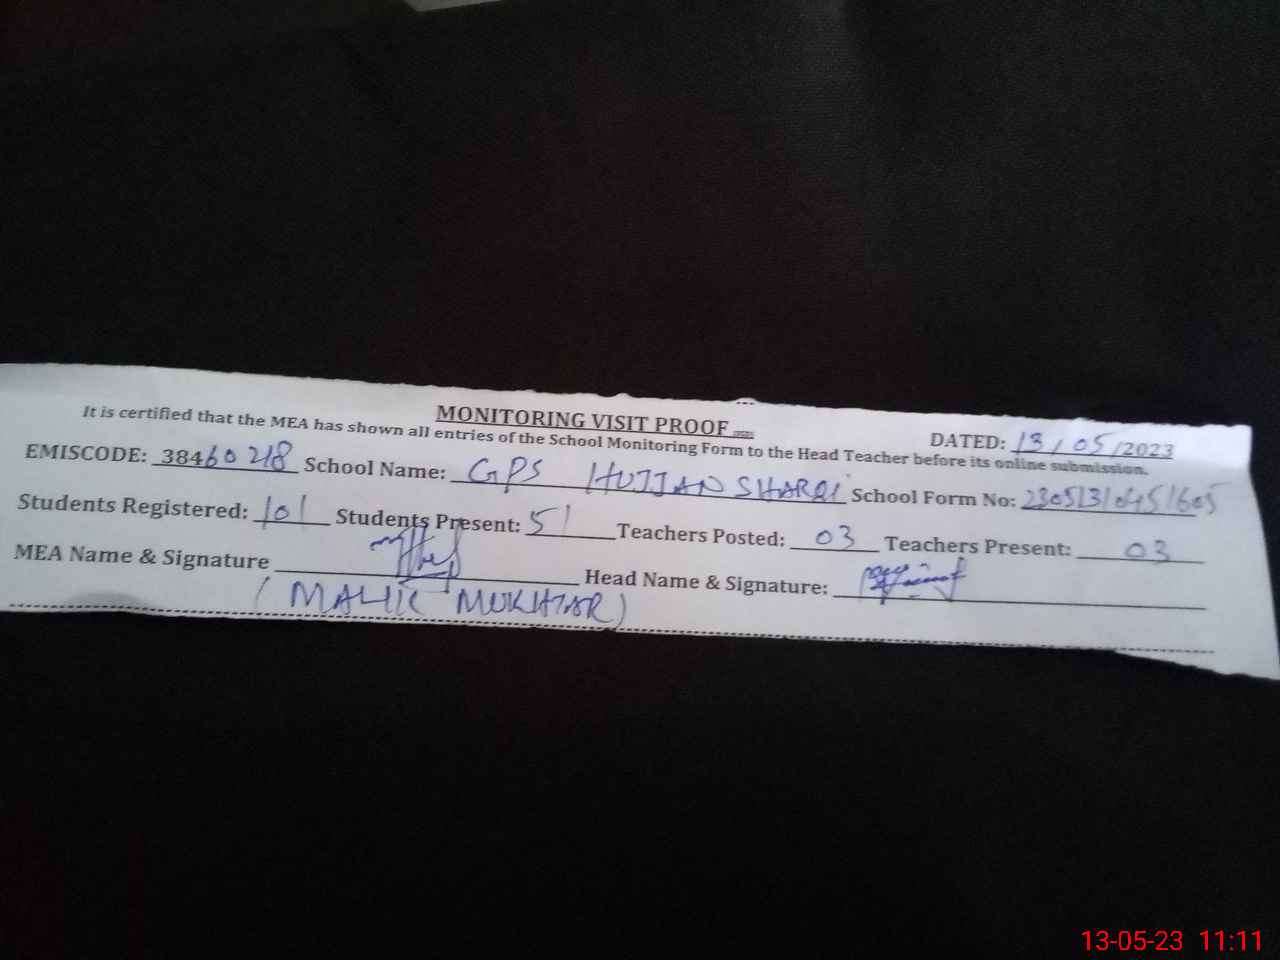 MONITORING VISIT PROOF
DATED: 13/05/2023
It is certified that the MEA has shown all entries of the School Monitoring Form to the Head Teacher before its online submission.
EMISCODE: 38460218 School Name: GPS HUJJAN SHARQI School Form No:
Students Registered: 101 Students Present: 51 Teachers Posted: 03 Teachers Present: 03
MEA Name & Signature Head Name & Signature:
(MALIK MUKHTAR)
13-05-23 11:11